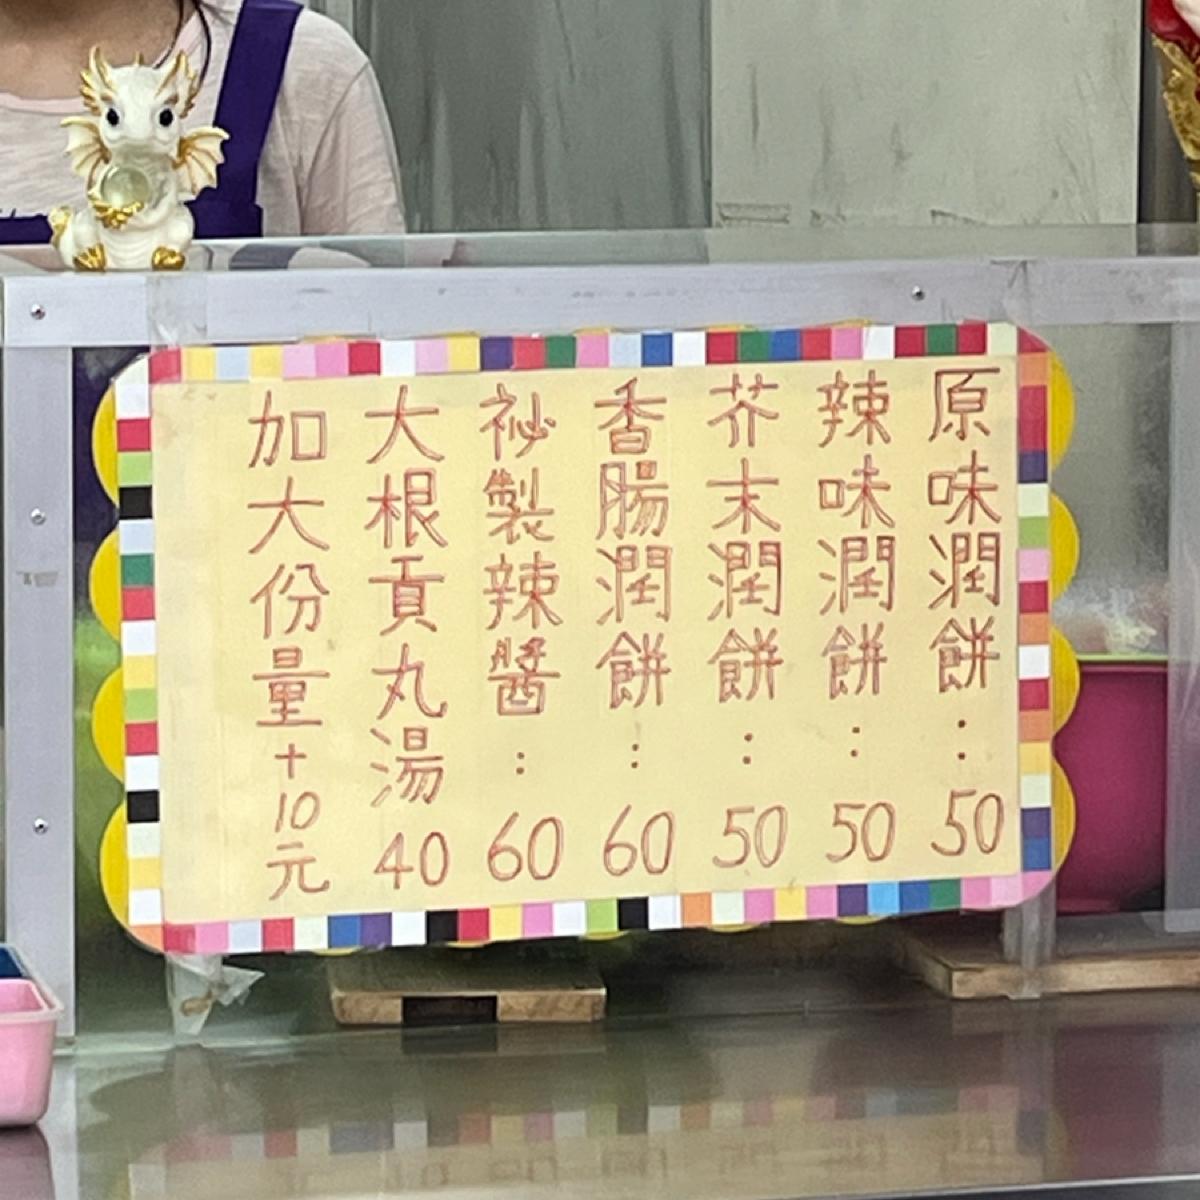 原味潤餅：50
辣味潤餅：50
芥末潤餅：50
香腸潤餅：60
祕製辣醬：60
大根貢丸湯40
加大份量+10元